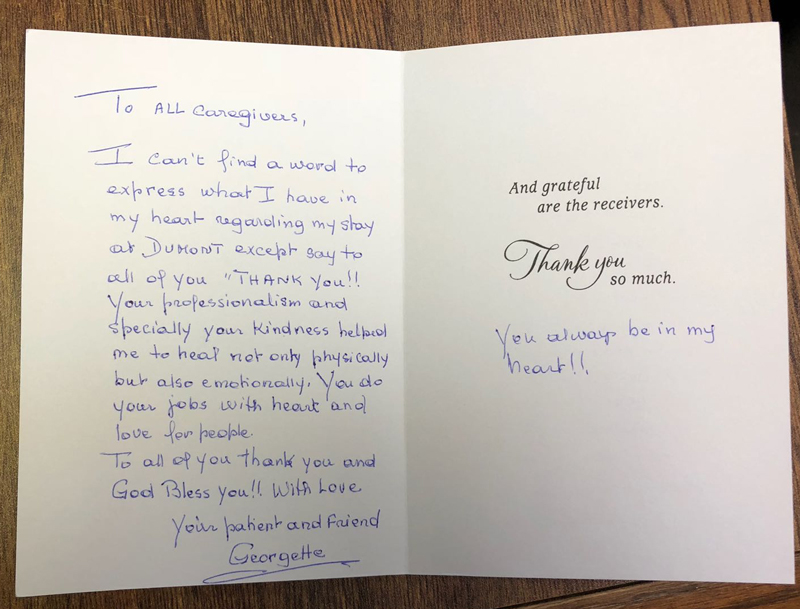 To ALL Caregivers,
I can't find a word to
express what I have in
my heart regarding my stay
at DUMONT except say to
all of you "THANK You!!
Your professionalism and
specially your kindness helped
me to heal not only physically
but also emotionally. You do
your jobs with heart and
love for people.
To all of you thank you and
God Bless you!! With Love
Your patient and Friend
Georgette
And grateful
are the receivers.
Thank you
so much.
You always be in my
heart!!